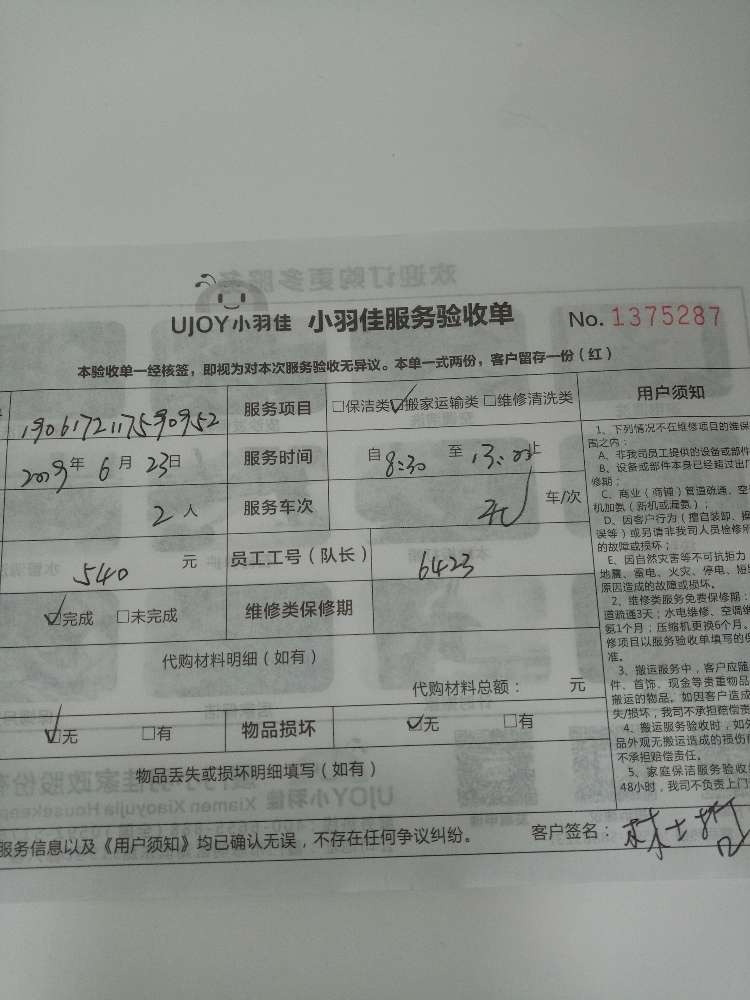 UJOY小羽佳 小羽佳服务验收单 No. 1375287
本验收单一经核签，即视为对本次服务验收无异议。本单一式两份，客户留存一份（红）
1906172117590952 服务项目 □保洁类☑搬家运输类 □维修清洗类 用户须知
2019年 6 月 23日 服务时间 自 8:30 至 13:00止
2 人 服务车次 车/次
540 元 员工工号（队长） 6423
☑完成 □未完成 维修类保修期
代购材料明细（如有）
代购材料总额： 元
☑无 □有 物品损坏 ☑无 □有
物品丢失或损坏明细填写（如有）
服务信息以及《用户须知》均已确认无误，不存在任何争议纠纷。 客户签名：
1、下列情况不在维修项目的维保
围之内：
A、非我司员工提供的设备或部件
B、设备或部件本身已经超过出厂
修期；
C、商业（商铺）管道疏通、空
机加氨（新机或漏氨）；
D、因客户行为（擅自装卸、操
误等）或另请非我司人员检修所
的故障或损坏；
E、因自然灾害等不可抗拒力
地震、雷电、火灾、停电、短
原因造成的故障或损坏。
2、维修类服务免费保修期：
道疏通3天；水电维修、空调维
氨1个月；压缩机更换6个月。
修项目以服务验收单填写的保
准。
3、搬运服务中，客户应随
件、首饰、现金等贵重物品
搬运的物品。如因客户造成
失/损坏，我司不承担赔偿责
4、搬运服务验收时，如外
品外观无搬运造成的损伤
不承担赔偿责任。
5、家庭保洁服务验收
48小时，我司不负责上门